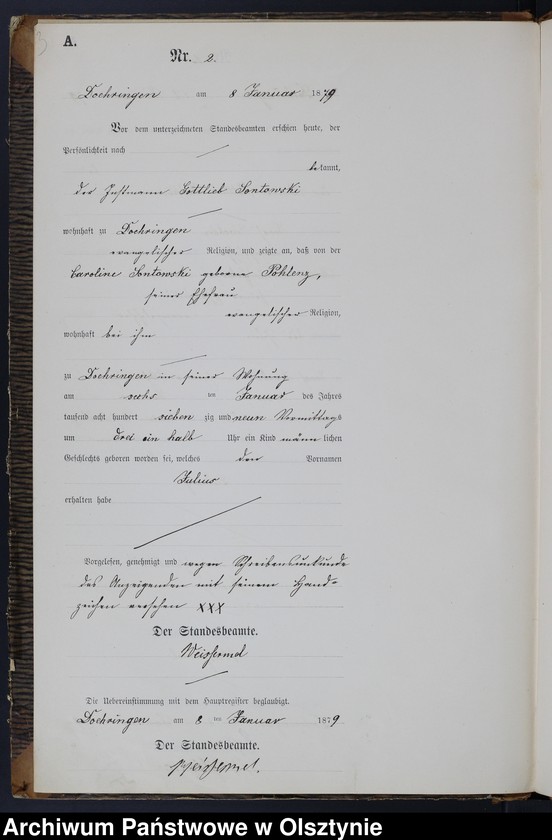 3
A.
Nr. 2.
Doehringen am 8 Januar 1879
Vor dem unterzeichneten Standesbeamten erschien heute, der
Persönlichkeit nach
bekannt,
der Instmann Gottlieb Sontowski
wohnhaft zu Doehringen
evangelischer Religion, und zeigte an, daß von der
Caroline Sontowski geborne Pohlenz,
seiner Ehefrau
evangelischer Religion,
wohnhaft bei ihm
zu Doehringen in seiner Wohnung
am sechs ten Januar des Jahres
tausend acht hundert sieben zig und neun Vormittags
um drei ein halb Uhr ein Kind männ lichen
Geschlechts geboren worden sei, welches den Vornamen
Julius
erhalten habe
Vorgelesen, genehmigt und wegen Schreibensunkunde
des Anzeigenden mit seinem Hand-
zeichen versehen XXX
Der Standesbeamte.
Die Uebereinstimmung mit dem Hauptregister beglaubigt.
Doehringen am 8 ten Januar 1879
Der Standesbeamte.
Archiwum Państwowe w Olsztynie